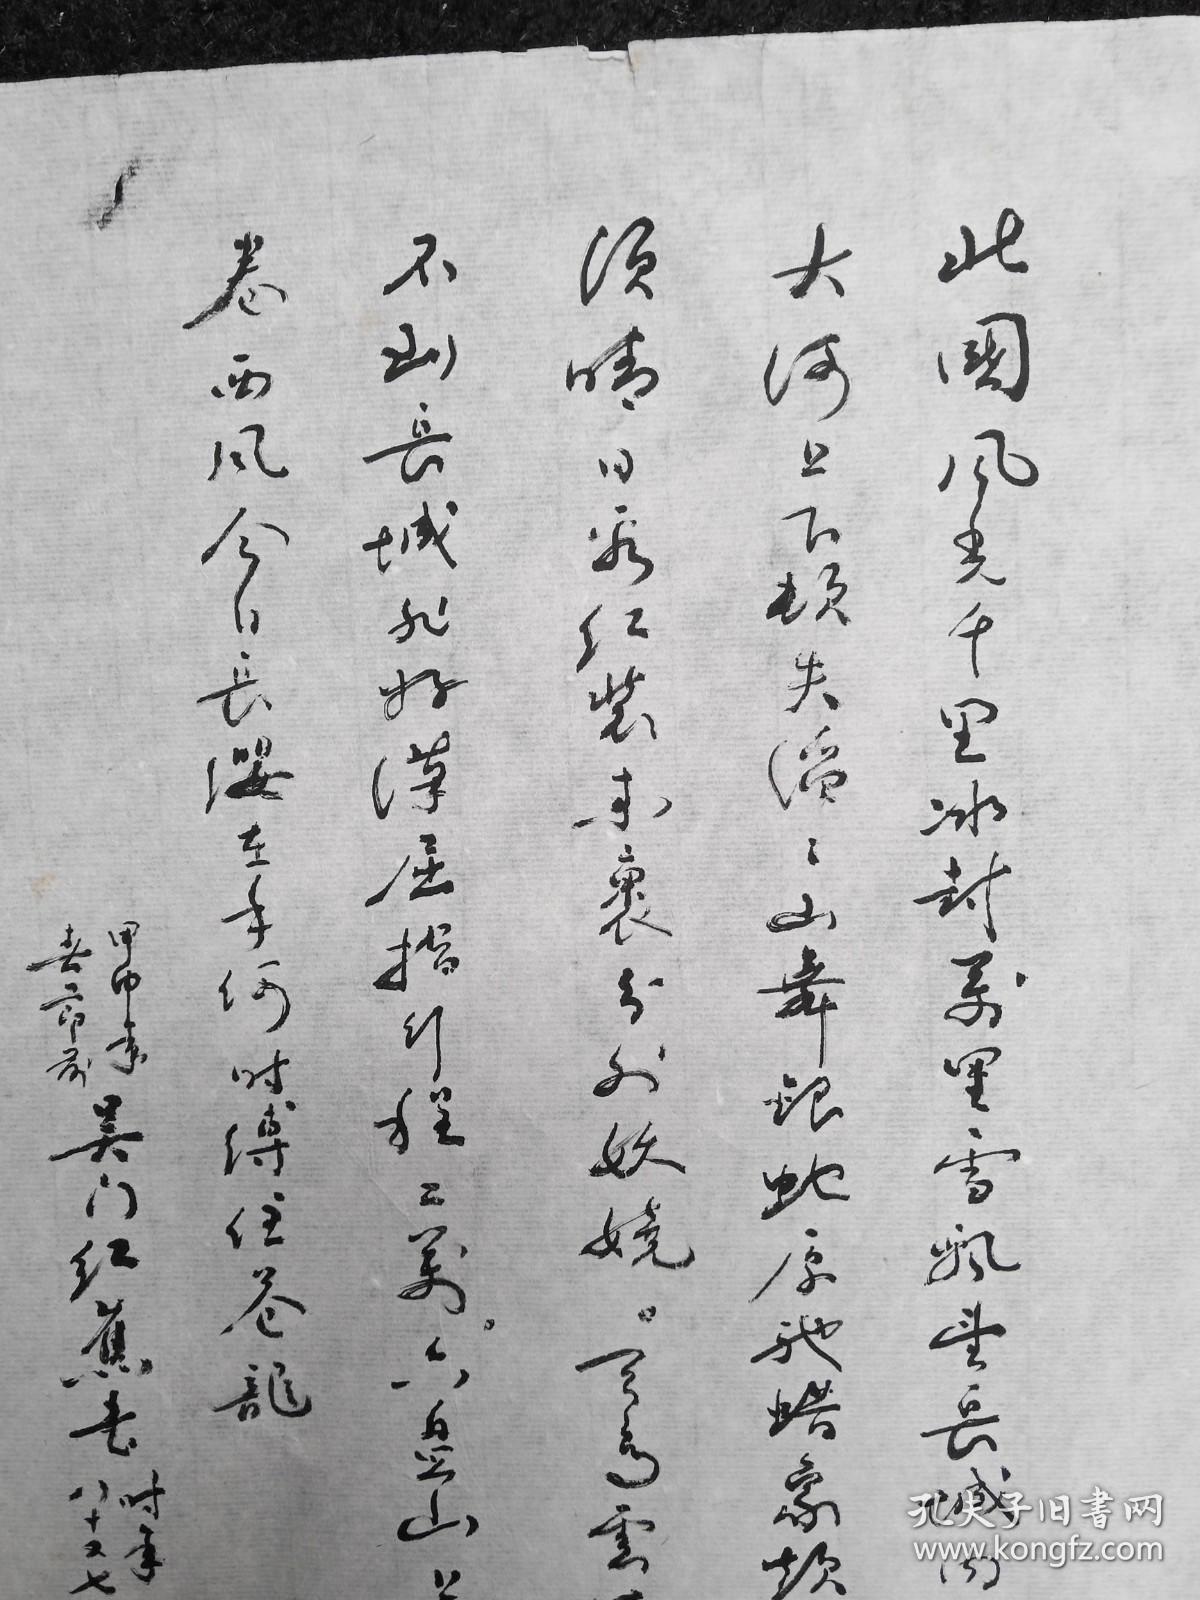 北國风光千里冰封萬里雪飘望長城内
大河上下顿失滔〻山舞银蛇原驰蜡象欲
须晴日看红装素裹分外妖娆。天高雲
不到長城非好漢屈指行程二萬。六盘山上
卷西风今日長缨在手何时缚住苍龍
甲申年
春节前
吴门红蕉书
时年
八十又七
孔夫子旧书网
www.kongfz.com